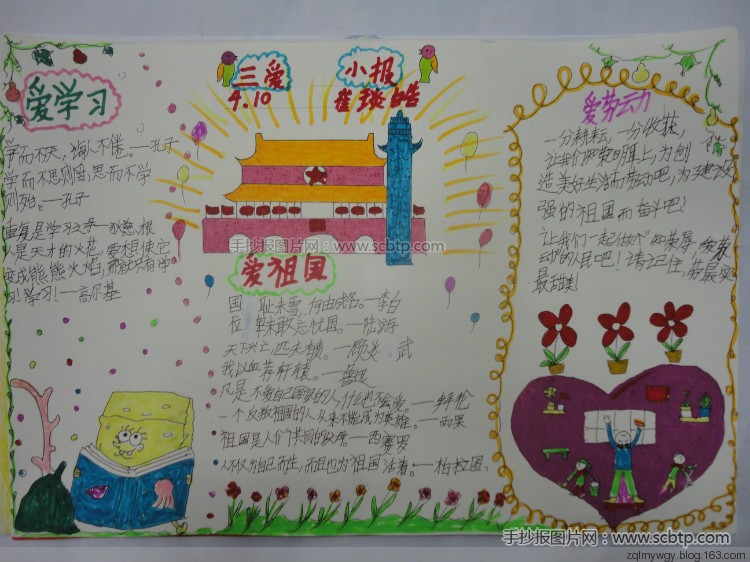 三爱 小报
4.10 崔璇皓
爱学习
学而不厌，诲人不倦。—孔子
学而不思则罔，思而不学
则殆。—孔子
是学习之母
是天才的火花，要想使它
变成熊熊火焰，那就只有学
习！学习！——高尔基
手抄报图片网：www.scbtp.com
爱祖国
国耻未雪，何由成名。—李白
位卑未敢忘忧国。—陆游
天下兴亡，匹夫有责。—顾炎武
我以血荐轩辕。—鲁迅
凡是不爱自己国家的人什么也不会爱。—拜伦
一个反对祖国的人从来不能成为英雄。—雨果
祖国是人们共同的父母—西赛罗
人不仅为自己而生，而且也为祖国活着。—柏拉图
爱劳动力
一分耕耘，一分收获，
让我们，为创
造美好生活而劳动吧，为了建设
强的祖国而奋斗吧！
让我们一起做个
动的人民吧！请记住，劳最
最甜美！
手抄报图片网：www.scbtp.com
zqlmywgy.blog.163.com